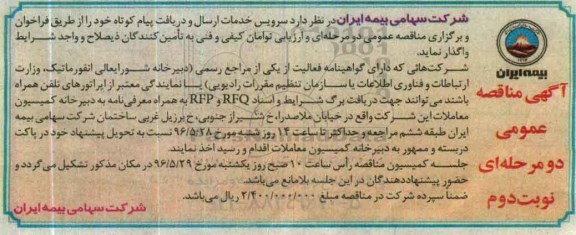 بیمه ایران
آگهی مناقصه
عمومی
دو مرحله‌ای
نوبت دوم
شرکت سهامی بیمه ایران در نظر دارد سرویس خدمات ارسال و دریافت پیام کوتاه خود را از طریق فراخوان
و برگزاری مناقصه عمومی دو مرحله‌ای و ارزیابی توامان کیفی و فنی به تأمین کنندگان ذیصلاح و واجد شرایط
واگذار نماید.
شرکت‌هائی که دارای گواهینامه فعالیت از یکی از مراجع رسمی (دبیرخانه شورایعالی انفورماتیک، وزارت
ارتباطات و فناوری اطلاعات یا سازمان تنظیم مقررات رادیویی) یا نمایندگی معتبر از اپراتورهای تلفن همراه
باشند می‌توانند جهت دریافت برگ شرایط و اسناد RFQ و RFP به همراه معرفی‌نامه به دبیرخانه کمیسیون
معاملات این شرکت واقع در خیابان ملاصدرا، خ شیراز جنوبی، خ برزیل غربی ساختمان شرکت سهامی بیمه
ایران طبقه ششم مراجعه و حداکثر تا ساعت ۱۴ روز شنبه مورخ ۹۶/۵/۲۸ نسبت به تحویل پیشنهاد خود در پاکت
دربسته و ممهور به دبیرخانه کمیسیون معاملات اقدام و رسید اخذ نمایند.
جلسه کمیسیون مناقصه رأس ساعت ۱۰ صبح روز یکشنبه مورخ ۹۶/۵/۲۹ در مکان مذکور تشکیل می‌گردد و
حضور پیشنهاددهندگان در این جلسه بلامانع می‌باشد.
ضمناً سپرده شرکت در مناقصه مبلغ ۲/۴۰۰/۰۰۰/۰۰۰ ریال می‌باشد.
شرکت سهامی بیمه ایران